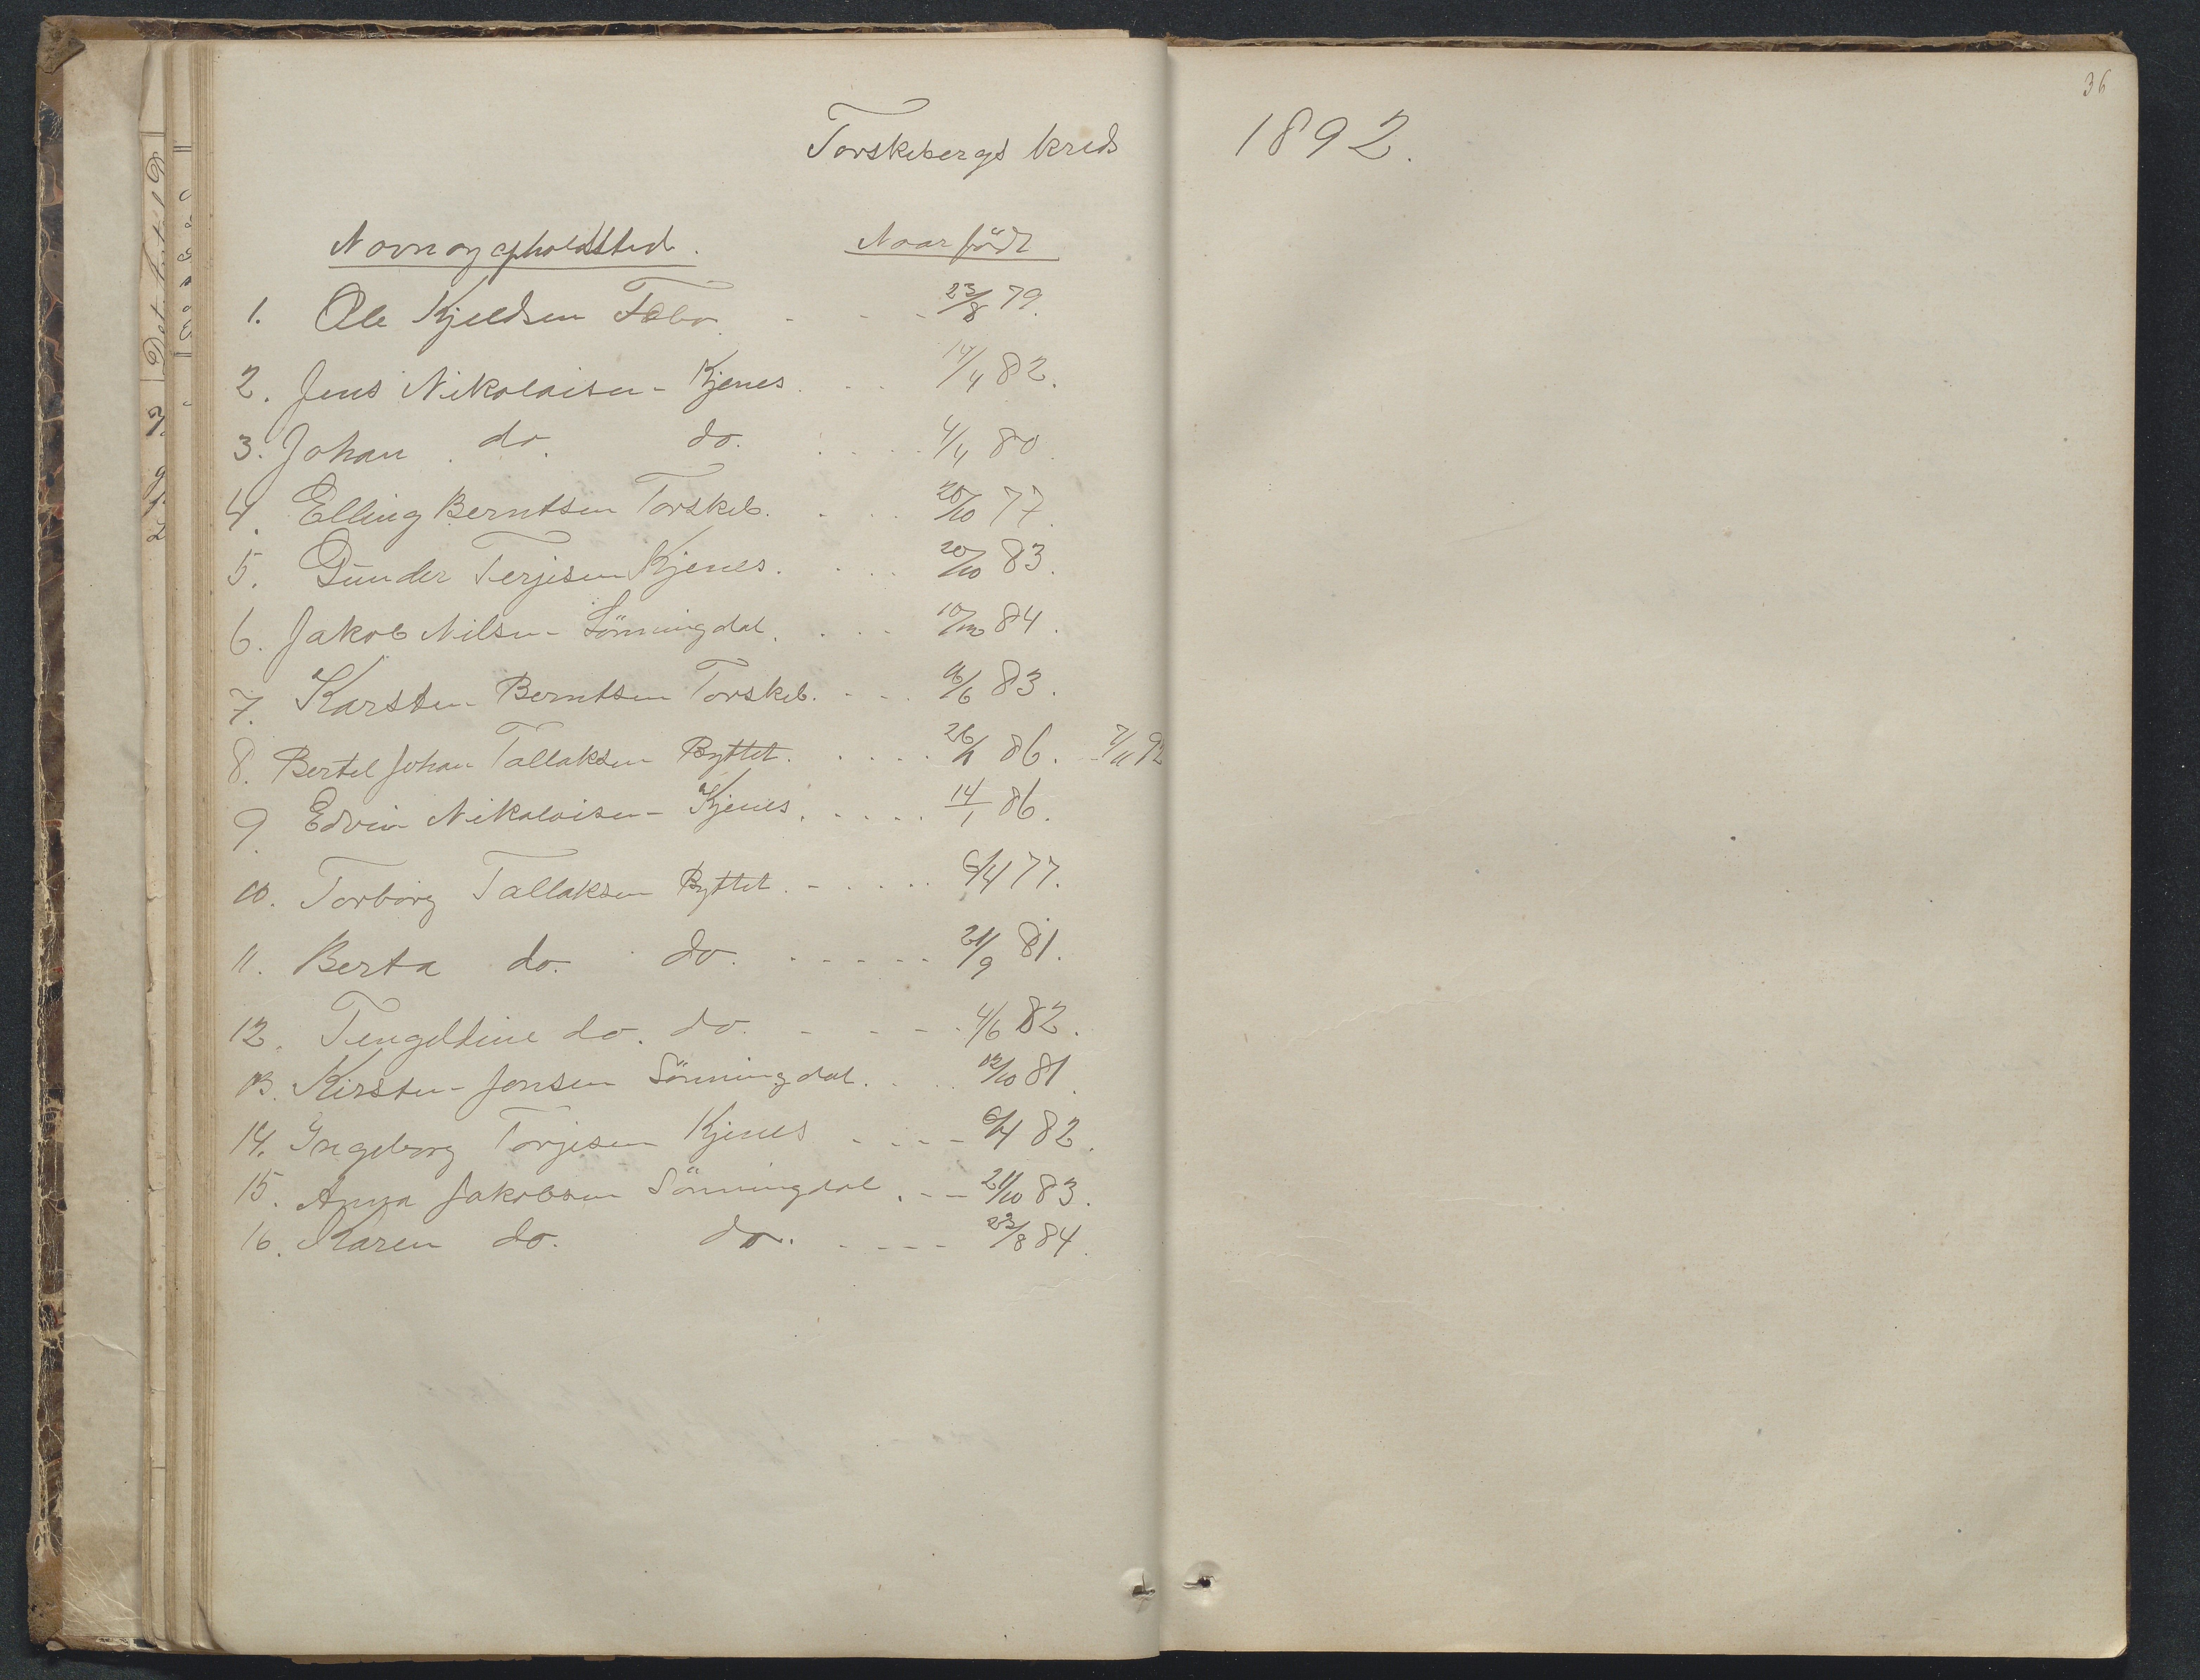 36
Torskebergs kreds 1892.
Navn og opholdssted. Naar födt
1. Ole Kjeldsen 23/8 79.
2. Jens Nikolaisen - Kjenes . . . 14/4 82.
3. Johan do. do. . . . 4/4 80.
4. Elling Berntsen Torskeb. . . . 20/10 77.
5. Gunder Terjesen Kjenes. . . . 20/10 83.
6. Jakob Nilsen - Sönningdal. . . . 84.
7. Karsten Berntsen Torskeb. . . . 16/6 83.
8. Bertel Johan Tallaksen Ryttet. . . . . 86. 7/11 92
9. Edvin Nikolaisen - Kjenes. . . . . 14/1 86.
10. Torborg Tallaksen Ryttet. . . . . 6/4 77.
11. Berta do. do. . . . . . 21/9 81.
12. Tengeltine do. do. - - - - 4/6 82.
13. Kirsten Jensen Sönningdal. . . . 12/10 81.
14. Ingeborg Torjesen Kjenes - - - - 6/4 82.
15. Anna Jakobsen Sönningdal. - - 21/10 83.
16. Karen do. do. - - - - 23/8 84.